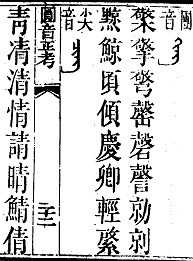 團音
檠擎罄磬謦勍剠
黥鯨頃傾慶卿輕綮
尖音
圓音正考
靑凊清情請晴鯖倩